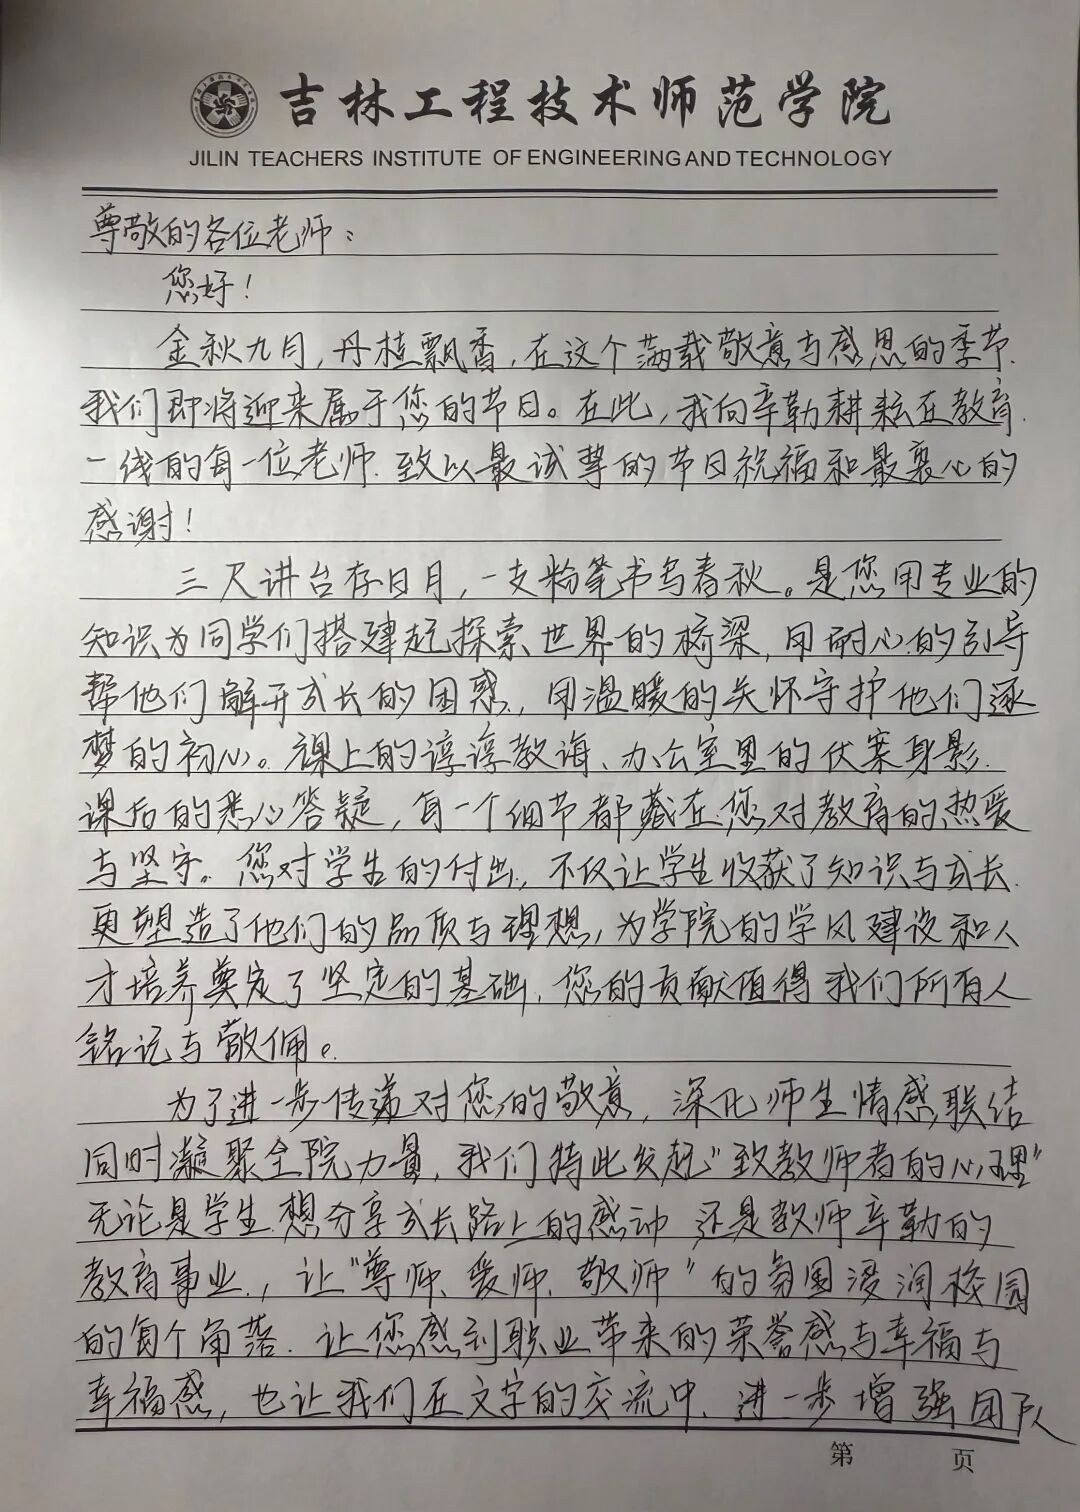 吉林工程技术师范学院
JILIN TEACHERS INSTITUTE OF ENGINEERING AND TECHNOLOGY
尊敬的各位老师：
您好！
金秋九月，丹桂飘香，在这个满载敬意与感恩的季节.
我们即将迎来属于您的节日。在此，我向辛勤耕耘在教育.
一线的每一位老师.致以最诚挚的节日祝福和最衷心的
感谢！
三尺讲台存日月，一支粉笔书写春秋。是您用专业的
知识为同学们搭建起探索世界的桥梁，用耐心的引导
帮他们解开成长的困惑，用温暖的关怀守护他们逐
梦的初心。课上的谆谆教诲、办公室里的伏案身影.
课后的悉心答疑，每一个细节都藏在您对教育的热爱
与坚守。您对学生的付出，不仅让学生收获了知识与成长.
更塑造了他们的品质与理想，为学院的学风建设和人
才培养奠定了坚定的基础，您的贡献值得我们所有人
铭记与敬佩。
为了进一步传递对您的敬意，深化师生情感联结
同时凝聚全院力量，我们特此发起“致教师者的心理”
无论是学生.想分享成长路上的感动 还是教师辛勤的
教育事业，让“尊师、爱师、敬师”的氛围浸润校园
的每个角落.让您感到职业带来的荣誉感与幸福与
幸福感，也让我们在文字的交流中、进一步增强团队
第 页